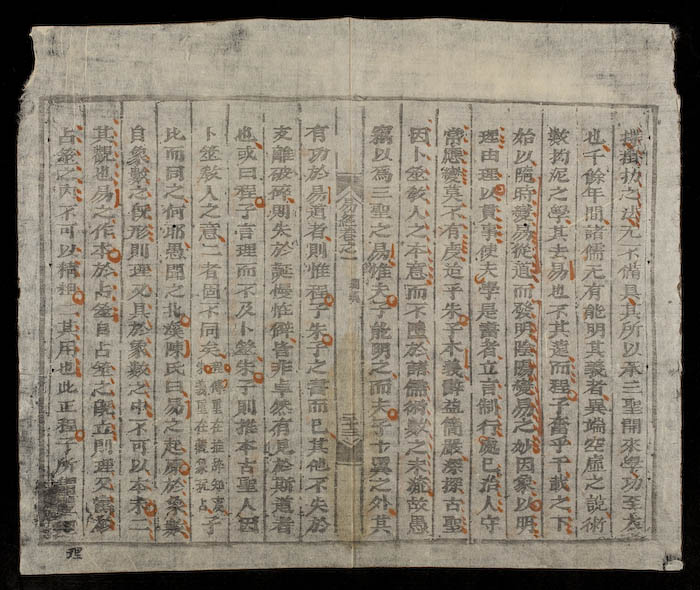 揲掛扐之法无不備具其所以承三聖開來學功至大
也千餘年間諸儒无有能明其義者異端空虛之說術
數拘泥之學其去易也不其遠而程子奮乎千載之下
始以隨時變易從道而發明陰陽變易之妙因象以明
理由理以貫事使夫學是書者立言制行處已治人守
常應變莫不有度迨乎朱子本義辭益簡嚴深探古聖
因卜筮教人之本意而不墮於諸儒術數之末故愚
竊以爲三聖之易惟夫子能明之而夫子十翼之外其
易經卷之一
有功於易道者則惟程子朱子之書而已其他不失於
支離破碎則失於誕慢怪僻皆非卓然有見於斯道者
也或曰程子言理而不及卜筮朱子則推本古聖人因
卜筮教人之意二者固不同矣程傳重在推辭知變本義重在觀象玩占子
比而同之何邪愚聞之北溪陳氏曰易之起原於象數
自象數之旣形則理又具於象數之中不可以本末二
其觀也易之作本於占筮自占筮之旣立則理又寓於
占筮之內不可以精粗二其用也此正程子所
理